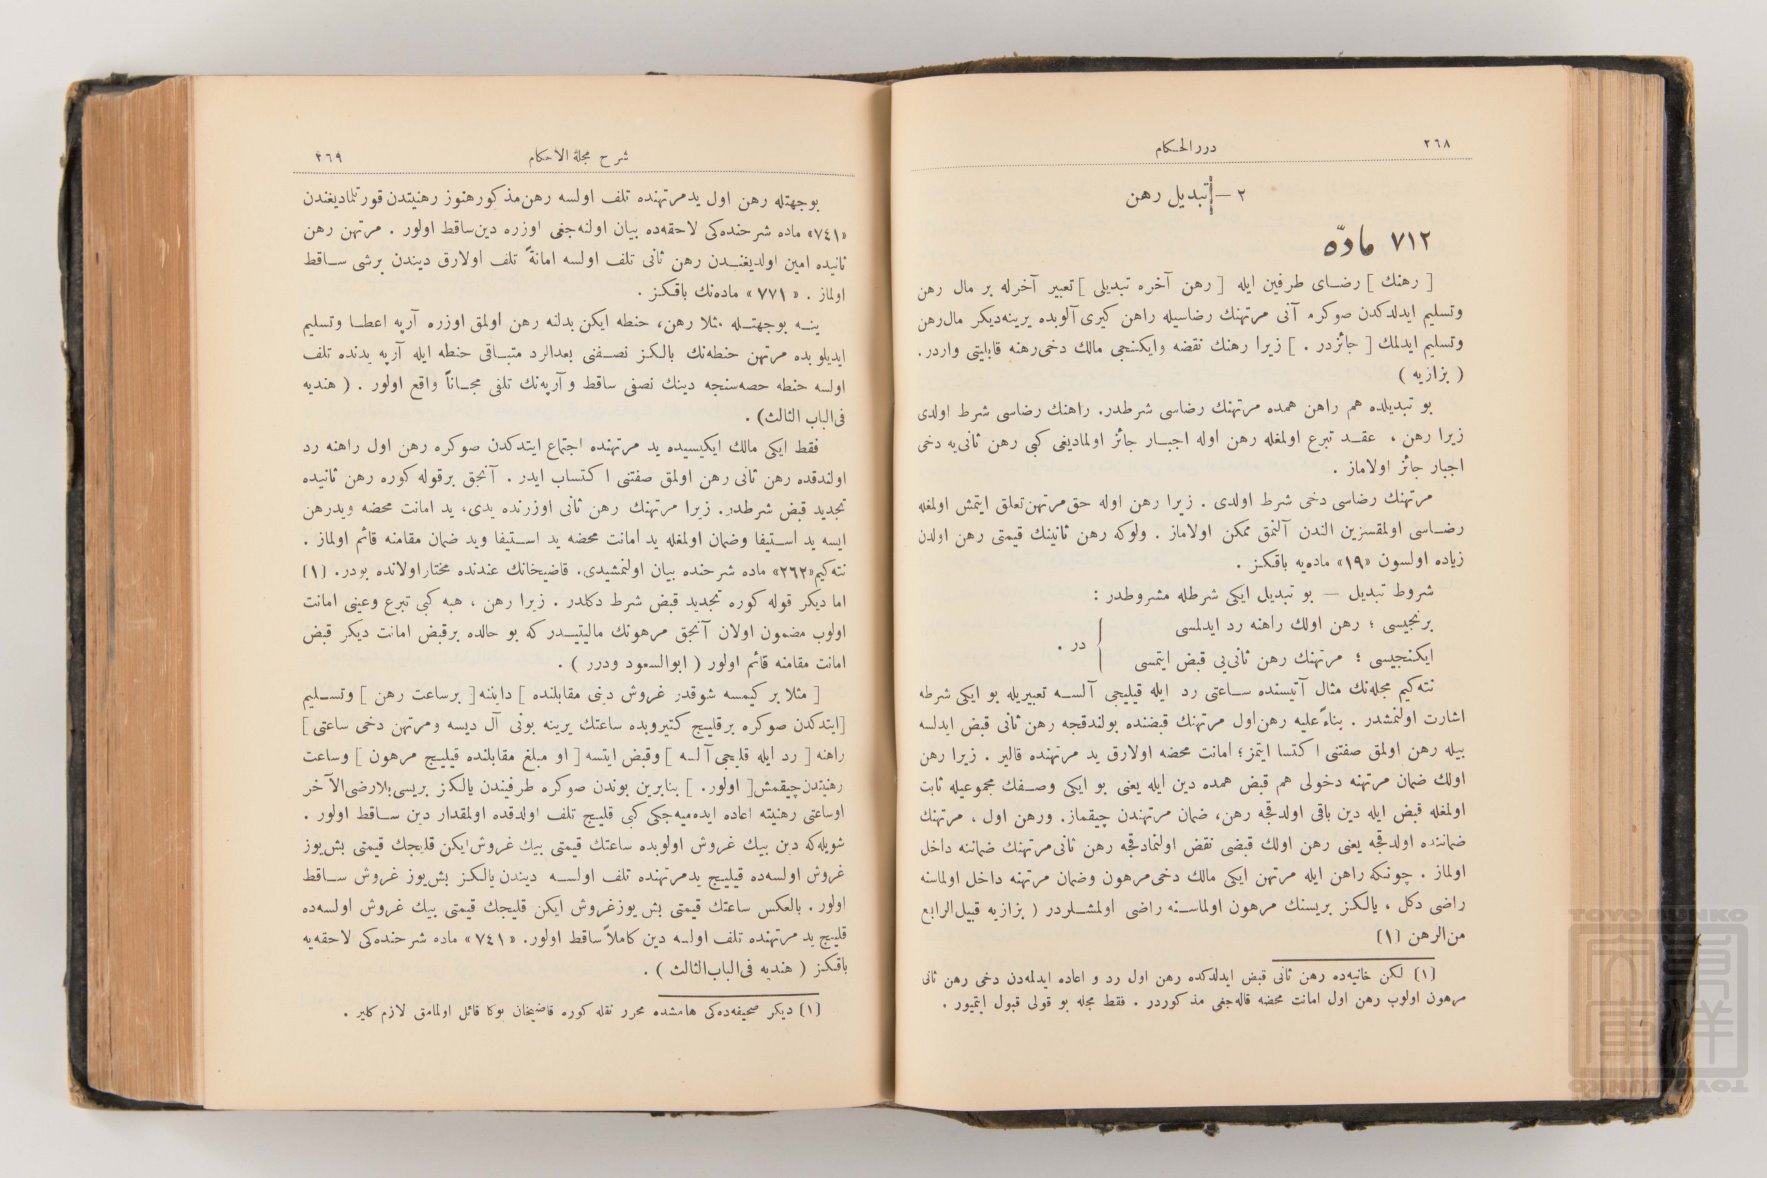 ٢٦٨
درر الحكام
٢ – تبديل رهن
٧١٢ مادّه
[ رهنك ] رضاى طرفين ايله [ رهن آخره تبديلى ] تعبير آخرله بر مال رهن
وتسليم ايدلدكدن صوكره آنى مرتهنك رضاسيله راهن كيرى آلوبده يرينه ديكر مال رهن
وتسليم ايدلمك [ جائزدر . ] زيرا رهنك نقضه وايكنجى مالك دخى رهنه قابليتى واردر .
( بزازيه )
بو تبديلده هم راهن همده مرتهنك رضاسى شرطدر . راهنك رضاسى شرط اولدى
زيرا رهن ، عقد تبرع اولمغله رهن اوله اجبار جائز اولماديغى كبى رهن ثانى يه دخى
اجبار جائز اولاماز .
مرتهنك رضاسى دخى شرط اولدى . زيرا رهن اوله حق مرتهن تعلق ايتمش اولمغله
رضاسى اولمقسزين الندن آلنمق ممكن اولاماز . ولوكه رهن ثانينك قيمتى رهن اولدن
زياده اولسون «١٩» ماده يه باقكز .
شروط تبديل — بو تبديل ايكى شرطله مشروطدر :
برنجيسى ؛ رهن اولك راهنه رد ايدلمسى
ايكنجيسى ؛ مرتهنك رهن ثانى يى قبض ايتمسى } در .
نته كيم مجله نك مثال آتيسنده ساعتى رد ايله قيليجى آلسه تعبيريله بو ايكى شرطه
اشارت اولنمشدر . بناءً عليه رهن اول مرتهنك قبضنده بولندقجه رهن ثانى قبض ايدلسه
بيله رهن اولمق صفتنى اكتسا ايتمز ؛ امانت محضه اولارق يد مرتهنده قالير . زيرا رهن
اولك ضمان مرتهنه دخولى هم قبض همده دين ايله يعنى بو ايكى وصفك مجموعيله ثابت
اولمغله قبض ايله دين باقى اولدقجه رهن ، ضمان مرتهندن چيقماز . ورهن اول ، مرتهنك
ضماننده اولدقجه يعنى رهن اولك قبضى نقض اولنمادقجه رهن ثانى مرتهنك ضماننه داخل
اولماز . چونكه راهن ايله مرتهن ايكى مالك دخى مرهون وضمان مرتهنه داخل اولماسنه
راضى دكل ، يالكز بريسنك مرهون اولماسنه راضى اولمشلردر ( بزازيه قبيل الرابع
من الرهن (١)
(١) لكن خانيه ده رهن ثانى قبض ايدلدكده رهن اول رد و اعاده ايدلمه دن دخى رهن ثانى
مرهون اولوب رهن اول امانت محضه قاله جغى مذكوردر . فقط مجله بو قولى قبول ايتميور .
شرح مجلة الاحكام
٢٦٩
بوجهتله رهن اول يد مرتهنده تلف اولسه رهن مذكور هنوز رهنيتدن قورتلماديغندن
«٧٤١» ماده شرحنده كى لاحقه ده بيان اولنه جغى اوزره دين ساقط اولور . مرتهن رهن
ثانيده امين اولديغندن رهن ثانى تلف اولسه امانةً تلف اولارق ديندن برشى ساقط
اولماز . «٧٧١» ماده نك باقكز .
ينه بوجهتله مثلا رهن ، حنطه ايكن بدلنه رهن اولمق اوزره آرپه اعطا وتسليم
ايديلوبده مرتهن حنطه نك يالكز نصفنى بعدالرد متباقى حنطه ايله آرپه يدنده تلف
اولسه حنطه حصه سنجه دينك نصفى ساقط و آرپه نك تلفى مجاناً واقع اولور . ( هنديه
فى الباب الثالث ) .
فقط ايكى مالك ايكيسيده يد مرتهنده اجتماع ايتدكدن صوكره رهن اول راهنه رد
اولندقده رهن ثانى رهن اولمق صفتنى اكتساب ايدر . آنجق برقوله كوره رهن ثانيده
تجديد قبض شرطدر . زيرا مرتهنك رهن ثانى اوزرنده يدى ، يد امانت محضه ويد رهن
ايسه يد استيفا وضمان اولمغله يد امانت محضه يد استيفا ويد ضمان مقامنه قائم اولماز .
نته كيم «٢٦٢» ماده شرحنده بيان اولنمشيدى . قاضيخانك عندنده مختار اولانده بودر . (١)
اما ديكر قوله كوره تجديد قبض شرط دكلدر . زيرا رهن ، هبه كبى تبرع وعينى امانت
اولوب مضمون اولان آنجق مرهونك ماليتيدر كه بو حالده برقبض امانت ديكر قبض
امانت مقامنه قائم اولور ( ابوالسعود ودرر ) .
[ مثلا بر كيمسه شو قدر غروش دينى مقابلنده ] داينه [ بر ساعت رهن ] وتسليم
[ايتدكدن صوكره برقليج كتيروبده ساعتك يرينه بونى آل ديسه ومرتهن دخى ساعتى]
راهنه [ رد ايله قليجى آلسه ] وقبض ايتسه [ او مبلغ مقابلنده قيليج مرهون ] وساعت
رهنيتدن چيقمش [ اولور . ] بنابرين بوندن صوكره طرفيندن يالكز بريسى بلارضى الآخر
اوساعتى رهنيته اعاده ايده ميه جكى كبى قليج تلف اولدقده اولمقدار دين ساقط اولور .
شويله كه دين بيك غروش اولوبده ساعتك قيمتى بيك غروش ايكن قليجك قيمتى بش يوز
غروش اولسه ده قيليج يد مرتهنده تلف اولسه ديندن يالكز بش يوز غروش ساقط
اولور . بالعكس ساعتك قيمتى بش يوز غروش ايكن قليجك قيمتى بيك غروش اولسه ده
قليج يد مرتهنده تلف اولسه دين كاملاً ساقط اولور . «٧٤١» ماده شرحنده كى لاحقه يه
باقكز ( هنديه فى الباب الثالث ) .
(١) ديكر صحيفه ده كى هامشده محرر نقله كوره قاضيخان بوكا قائل اولمامق لازم كلير .
TOYO BUNKO
東洋文庫
TOYO BUNKO